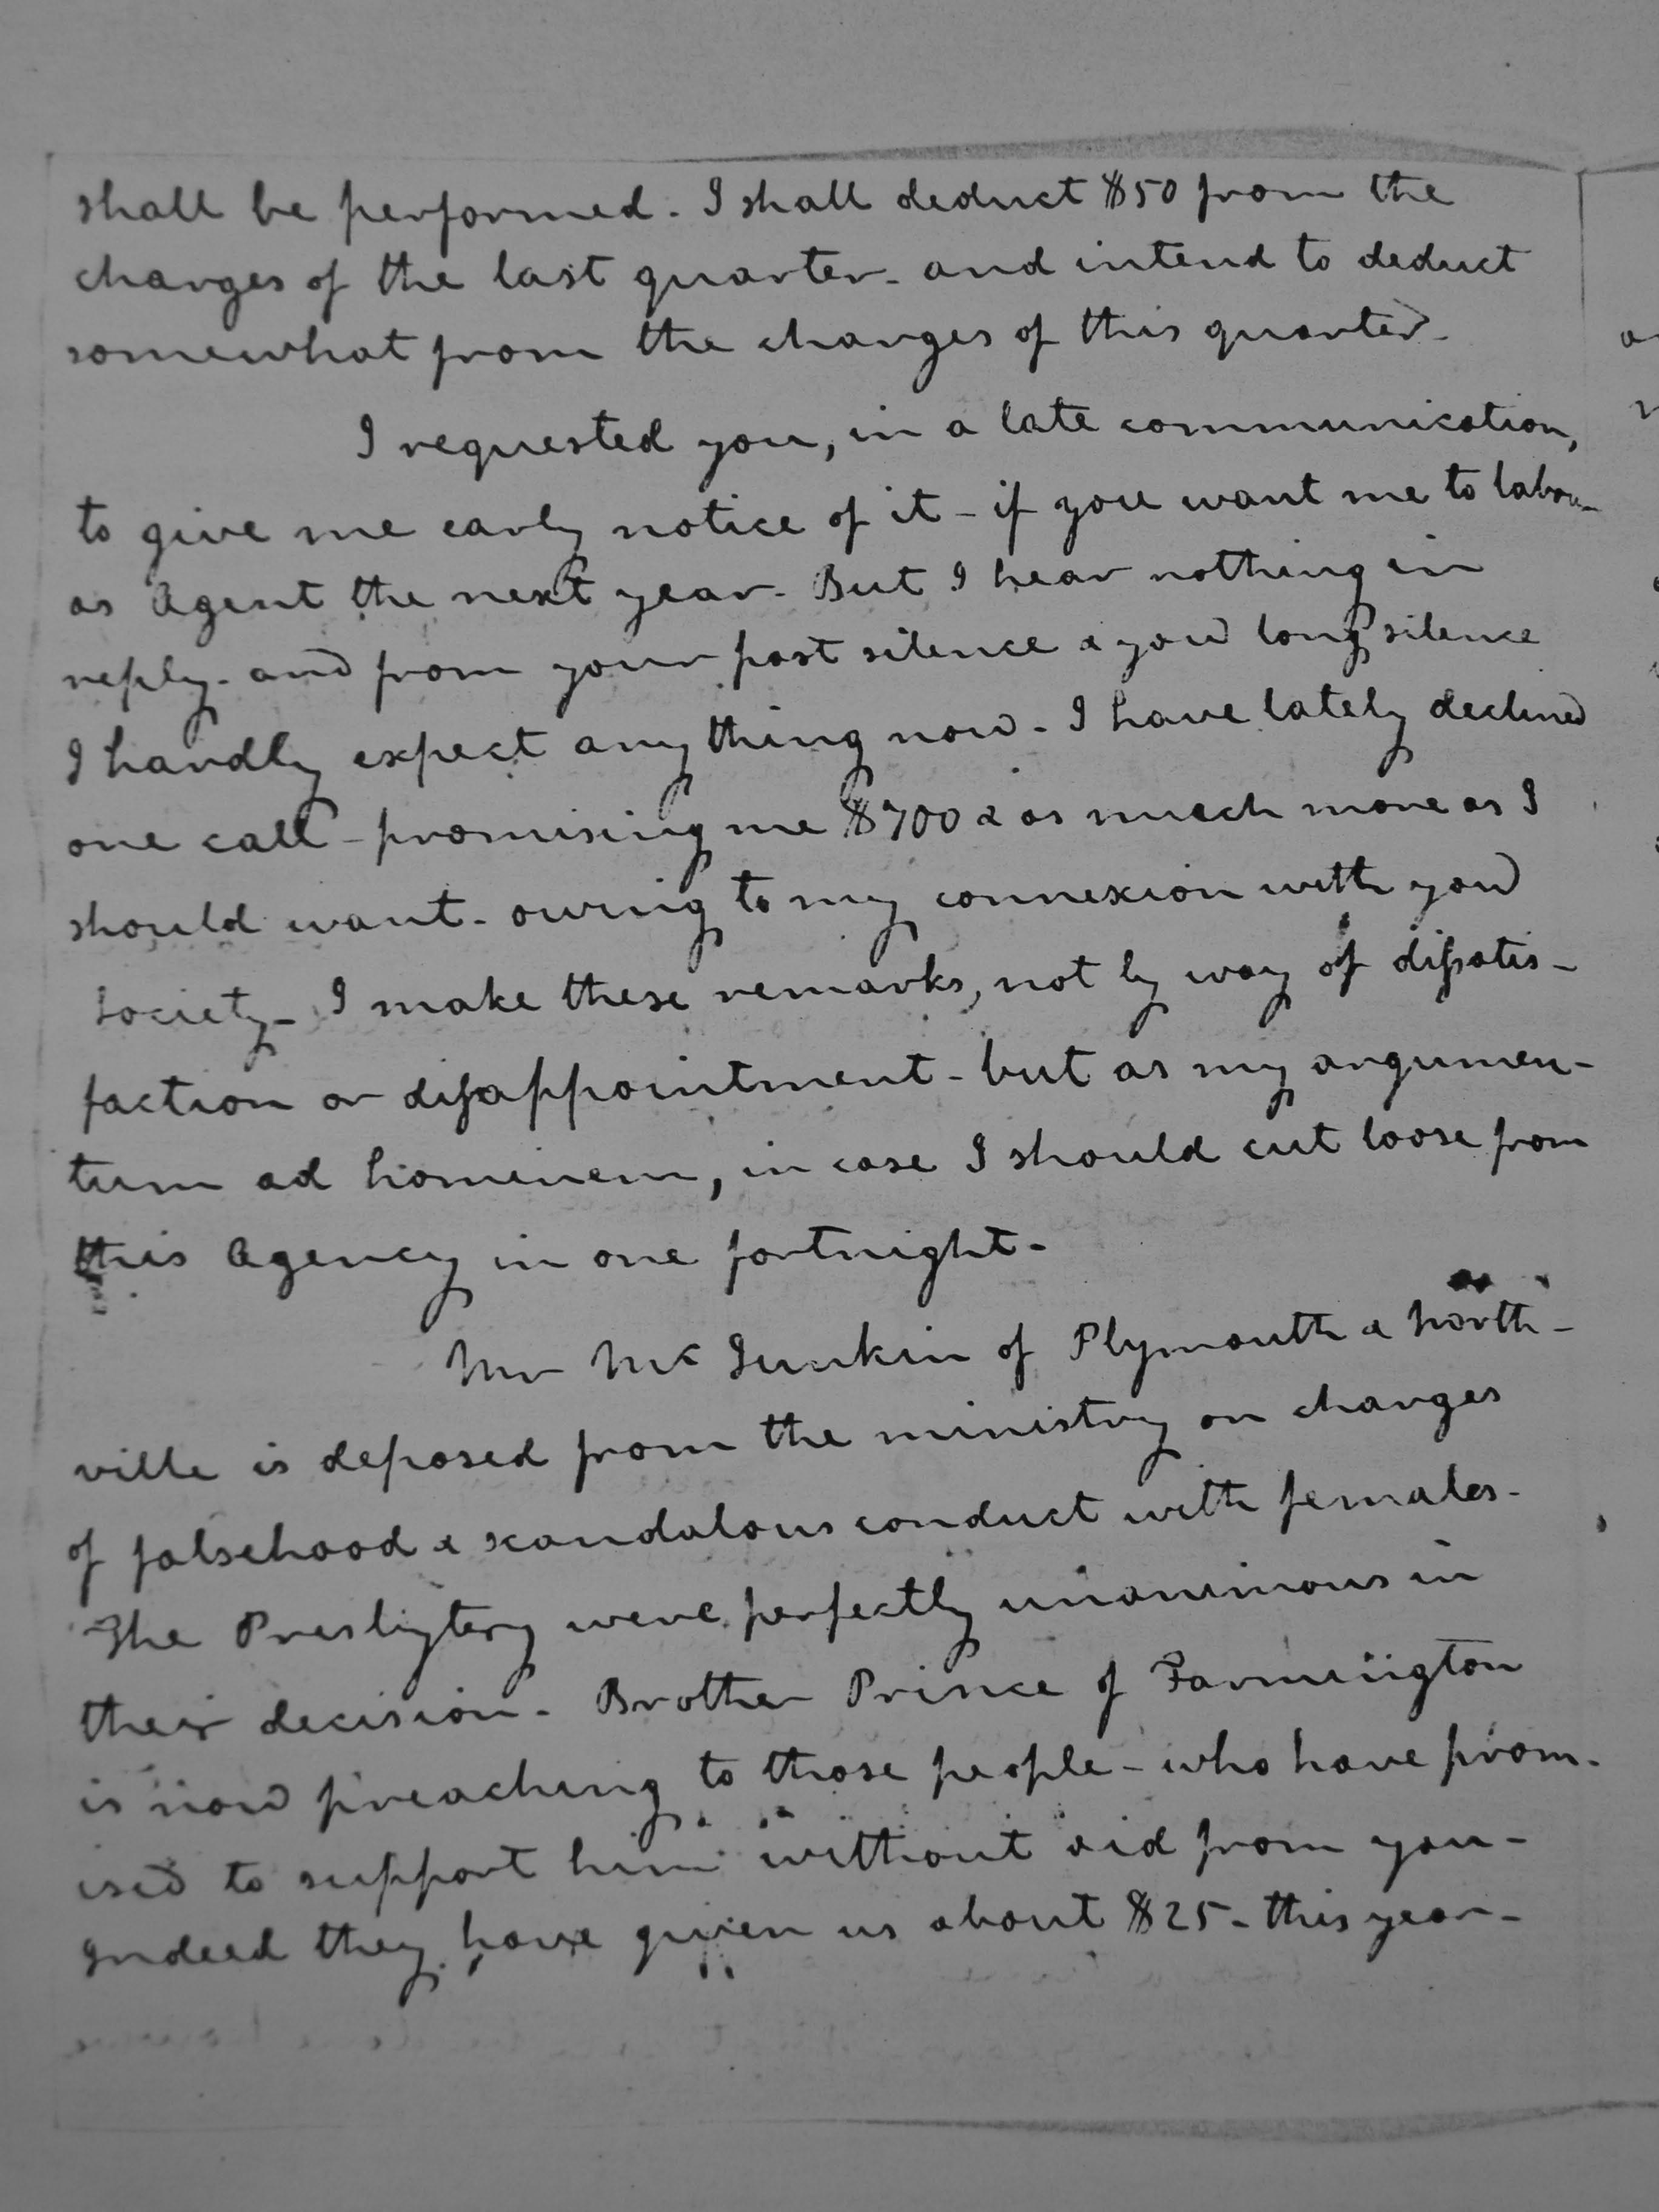 shall be performed. I shall deduct $50 from the
charges of the last quarter - and intend to deduct
somewhat from the charges of this quarter -
I requested you, in a late communication,
to give me early notice of it - if you want me to labour
as Agent the next year - But I hear nothing in
reply - and from your past silence & your long silence
I hardly expect any thing now - I have lately declined
one call - promising me $700 & as much more as I
should want - owing to my connexion with your
Society - I make these remarks, not by way of dissatis-
faction or disappointment - but as my argumen-
tum ad hominem, in case I should cut loose from
this Agency in one fortnight -
Mr McJunkin of Plymouth & North-
ville is deposed from the ministry on charges
of falsehood & scandalous conduct with females -
The Presbytery were perfectly unanimous in
their decision - Brother Prince of Farmington
is now preaching to those people - who have prom-
ised to support him without aid from you -
Indeed they have given us about $25 - this year -